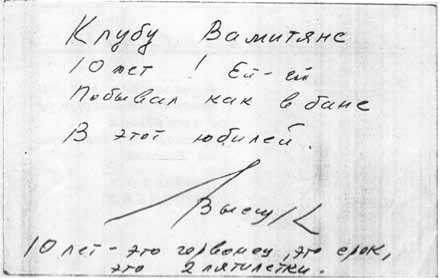 Клубу Вамитяне
10 лет ! Ей-ей
Побывал как в бане
В этот юбилей.
10 лет - это червонец, это срок,
это 2 пятилетки.